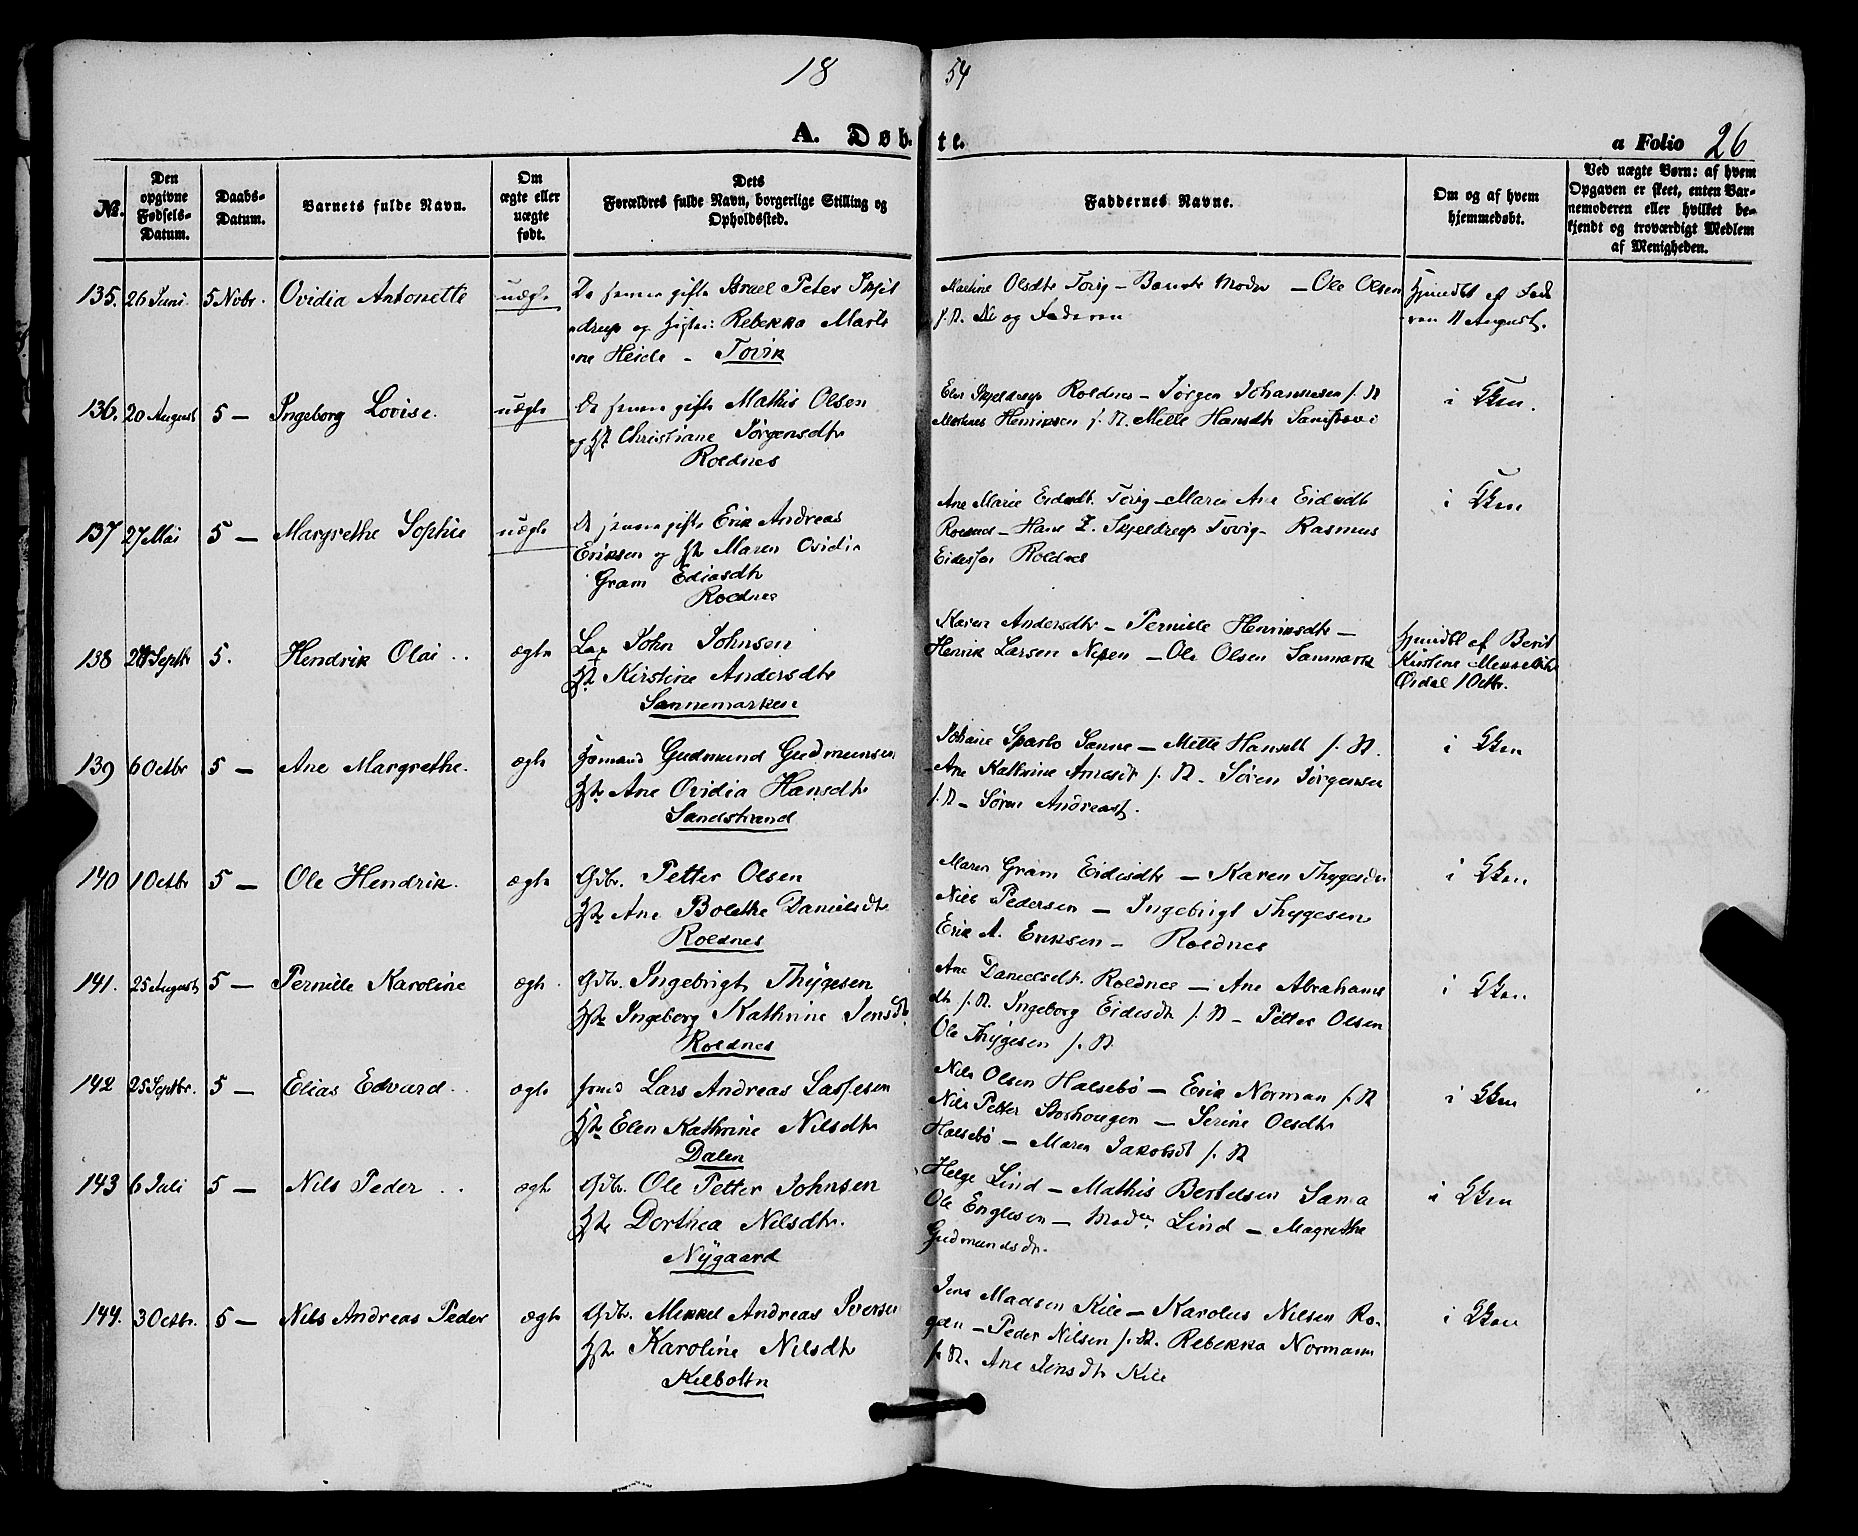 18 54
A. Døbte.
a Folio 26
No.
Den opgivne Fødsels-Datum.
Daabs-Datum.
Barnets fulde Navn.
Om ægte eller uægte født.
Dets Forældres fulde Navn, borgerlige Stilling og Opholdssted.
Faddernes Navne.
Om og af hvem hjemmedøbt.
Ved uægte Børn: af hvem Opgaven er skeet, enten Barnemoderen eller hvilket bekjendt og troværdigt Medlem af Menigheden.
135. 26 Juni. 5 Novbr. Ovidia Antonette uægte
De senere gifte Israel Peter Skjel
drup og Rebekka Marti
ne Heide - Tovik
Martine Olsdtr Tovig - Barnets Moder - Ole Olsen
s. St. og Faderen
Hjemdbt af Fade
ren 11 August.
136. 20 August 5 - Ingeborg Lovise. uægte
De senere gifte Mathis Olsen
og Christiane Jørgensdtr
Roldnes
Skjeldrup Roldnes - Jørgen Johannesen s. St
Henriksen s. St. Mette Hansdtr
i Kken.
137 27 Mai 5 - Margrethe Sophie uægte
De senere gifte Erik Andreas
Eriksen og Maren Ovidia
Gram Ediasdtr
Roldnes
Ane Marie Tovig - Maren Ane Eidisdt
Roldnes - Hans Z. Skjeldrup Tovig - Rasmus
Roldnes
i Kken
138 Septbr 5. Hendrik Olai .. ægte
John Johnsen
Kirstine Andersdtr
Sannemarken
Karen Andersdtr - Pernille Henriksdtr -
Henrik Larsen - Ole Olsen Sanmark
hjemdbt af Berit
Kirstine
1 Octbr.
139 6 Octbr 5 - Ane Margrethe. ægte
Gudmund Gudmunsen
Ane Ovidia Hansdtr
Sandstrand
Johane Sparbo Sanne - Mette Hansdt s. St.
Ane Kathrine s. St. Søren Jørgensen
s. St - Søren
i Kken
140 1 Octbr 5 - Ole Hendrik. ægte
Gdbr. Petter Olsen
Ane Bolethe Danielsdtr
Roldnes
Maren Gram Eidisdtr - Karen Thygesdtr
Niels Pedersen - Ingebrigt Thygesen
Erik A. Eriksen - Roldnes
i Kken
141. 25 August 5 - Pernille Karoline ægte
Gdbr. Ingebrigt Thygesen
Ingeborg Kathrine Jensdt.
Roldnes
Ane Danielsdt. Roldnes - Ane Abrahams
dtr s. St. Ingeborg Eidisdtr s. St - Petter Olsen
Ole Thygesen s. St
i Kken
142 25 Septbr. 5 - Elias Edvard .. ægte
Lars Andreas Lassesen
Elen Kathrine Nilsdtr
Dalen
Nils Olsen Halsebø - Erik Norman s. St
Nils Petter Storhougen - Serine Olsdtr
Halsebø - Maren Jakobsdt s. St
i Kken
143 6 Juli 5 - Nils Peder .. ægte
Gdbr. Ole Petter Johnsen
Dorthea Nilsdtr.
Nygaard
Helge Lind - Mathis Bertelsen Sama
Ole Englesen - Lind - Magrethe
Gudmundsdtr.
i Kken
144. 3 Octbr. 5 - Nils Andreas Peder ægte
Gdbr. Mikkel Andreas Iversen
Karoline Nilsdtr
Kilbotn
Jens Madsen Kile - Karolus Nilsen Ro-
gen - Peder Nilsen s. St. Rebekka Normann
s. St. Ane Jensdtr Kile
i Kken